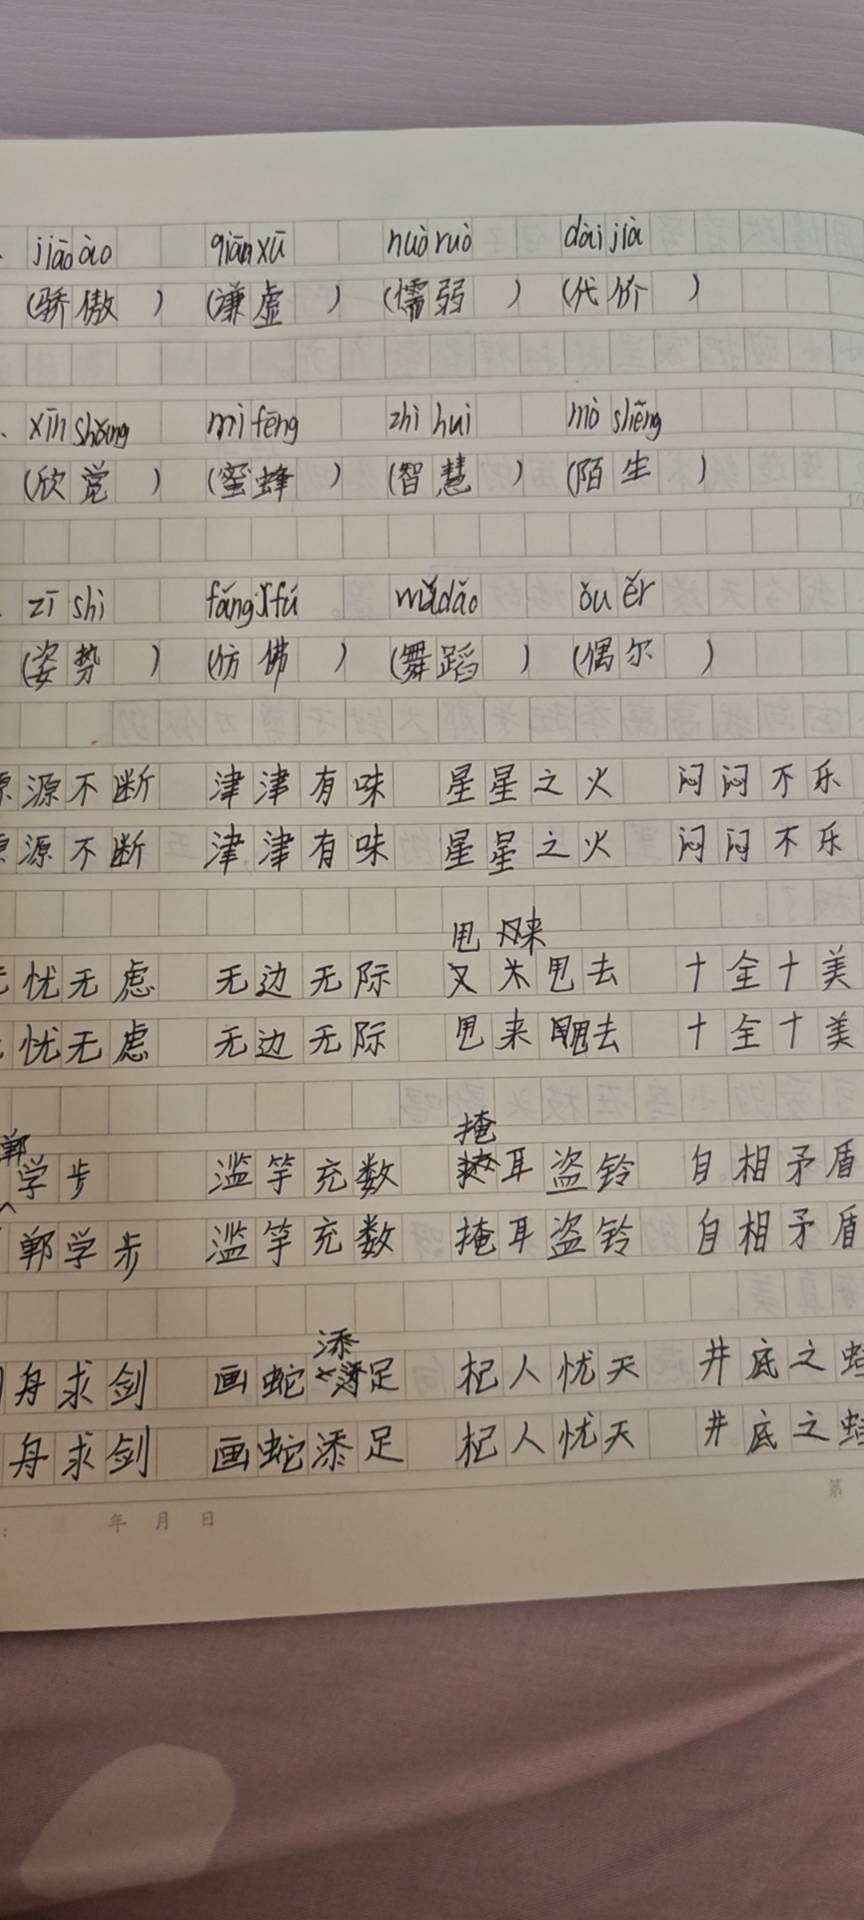 jiāo ào qiān xū nuò ruò dài jià
(骄傲 ) (谦虚 ) (懦弱 ) (代价 )
xīn shǎng mì fēng zhì huì mò shēng
(欣赏 ) (蜜蜂 ) (智慧 ) (陌生 )
zī shì fǎng fú wǔ dǎo ǒu ěr
(姿势 ) (仿佛 ) (舞蹈 ) (偶尔 )
源不断 津津有味 星星之火 闷闷不乐
源不断 津津有味 星星之火 闷闷不乐
甩 来
忧无虑 无边无际 甩去 十全十美
忧无虑 无边无际 甩来甩去 十全十美
郸 掩
学步 滥竽充数 耳盗铃 自相矛盾
郸学步 滥竽充数 掩耳盗铃 自相矛盾
添
舟求剑 画蛇足 杞人忧天 井底之蛙
舟求剑 画蛇添足 杞人忧天 井底之蛙
年 月 日 第